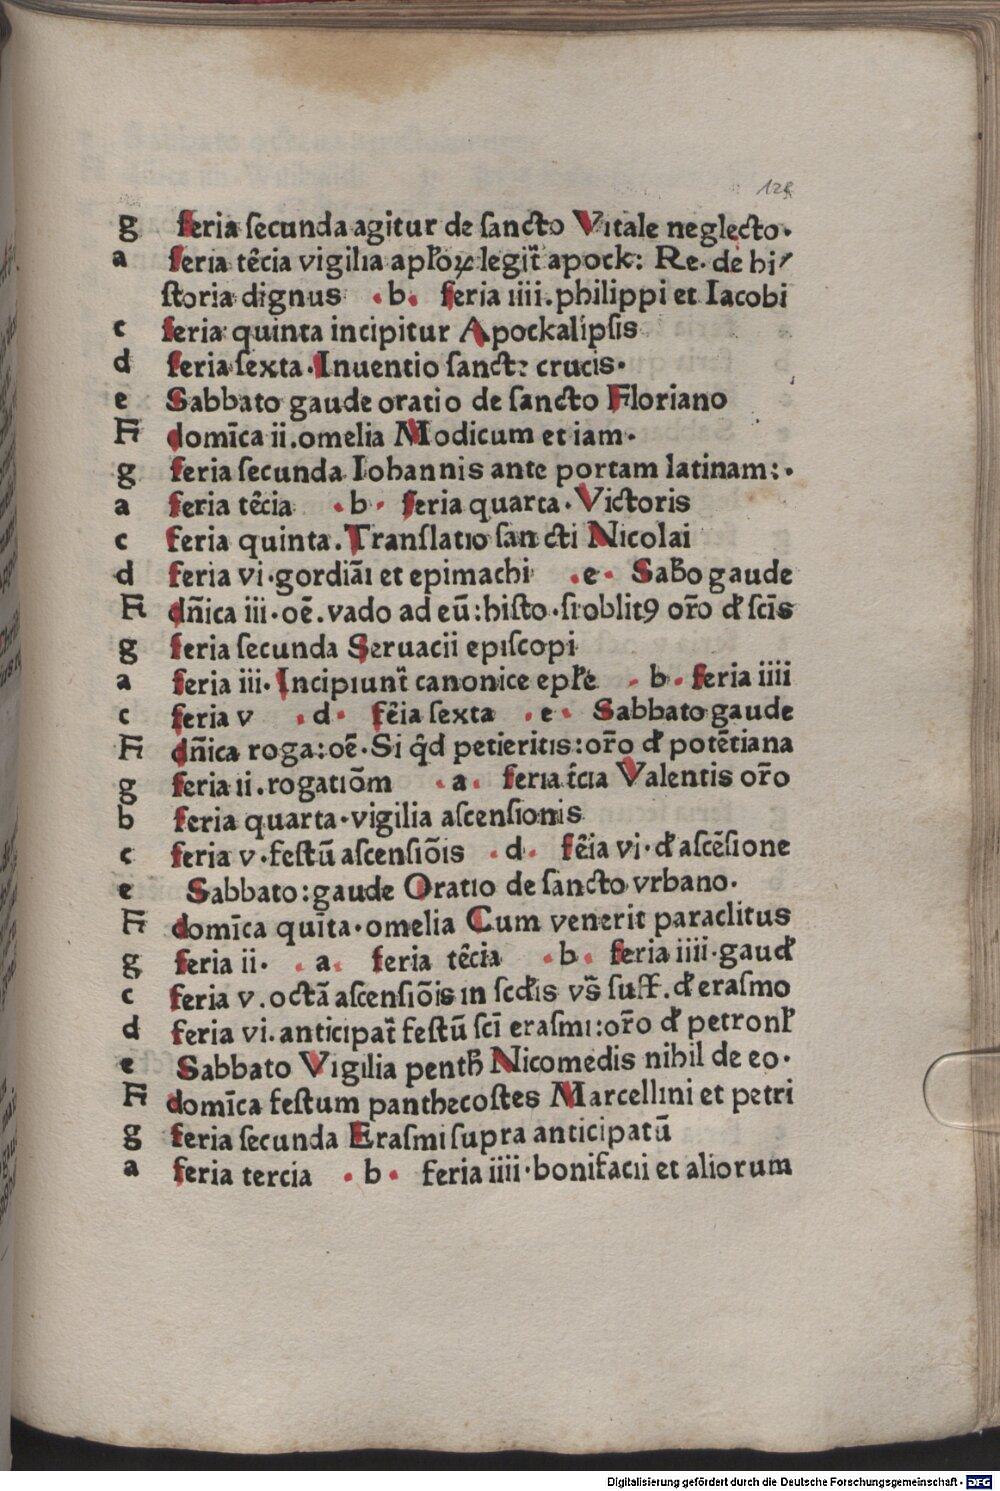 128
g feria secunda agitur de sancto Vitale neglecto.
a feria tēcia vigilia apl̄oꝝ legit̄ apock: Re. de hi⸗
storia dignus .b. feria iiii. philippi et Iacobi
c feria quinta incipitur Apockalipsis
d feria sexta. Inuentio sancte crucis.
e Sabbato gaude oratio de sancto Floriano
A domīca ii. omelia Modicum et iam.
g feria secunda Iohannis ante portam latinam:.
a feria tēcia .b. feria quarta. Victoris
c feria quinta. Translatio sancti Nicolai
d feria vi. gordiāi et epimachi .e. Sabƀo gaude
A dn̄ica iii. oē. vado ad eū: histo. si oblitꝯ or̄o đ scīs
g feria secunda Seruacii episcopi
a feria iii. Incipiunt̄ canonice epl̄e .b. feria iiii
c feria v .d. fēia sexta .e. Sabbato gaude
A dn̄ica roga: oē. Si q̄d petieritis: or̄o đ potētiana
g feria ii. rogatiōm .a. feria t̄cia Valentis or̄o
b feria quarta. vigilia ascensionis
c feria v. festū ascensiōis .d. fēia vi. đ ascēsione
e Sabbato: gaude Oratio de sancto vrbano.
A domīca quīta. omelia Cum venerit paraclitus
g feria ii. .a. feria tēcia .b. feria iiii. gauđ
c feria v. octā ascensiōis in scđis vs̄ suff. đ erasmo
d feria vi. anticipat̄ festū scī erasmi: or̄o đ petronł
e Sabbato Vigilia penth̄ Nicomedis nihil de eo.
A domīca festum panthecostes Marcellini et petri
g feria secunda Erasmi supra anticipatū
a feria tercia .b. feria iiii. bonifacii et aliorum
Digitalisierung gefördert durch die Deutsche Forschungsgemeinschaft - DFG